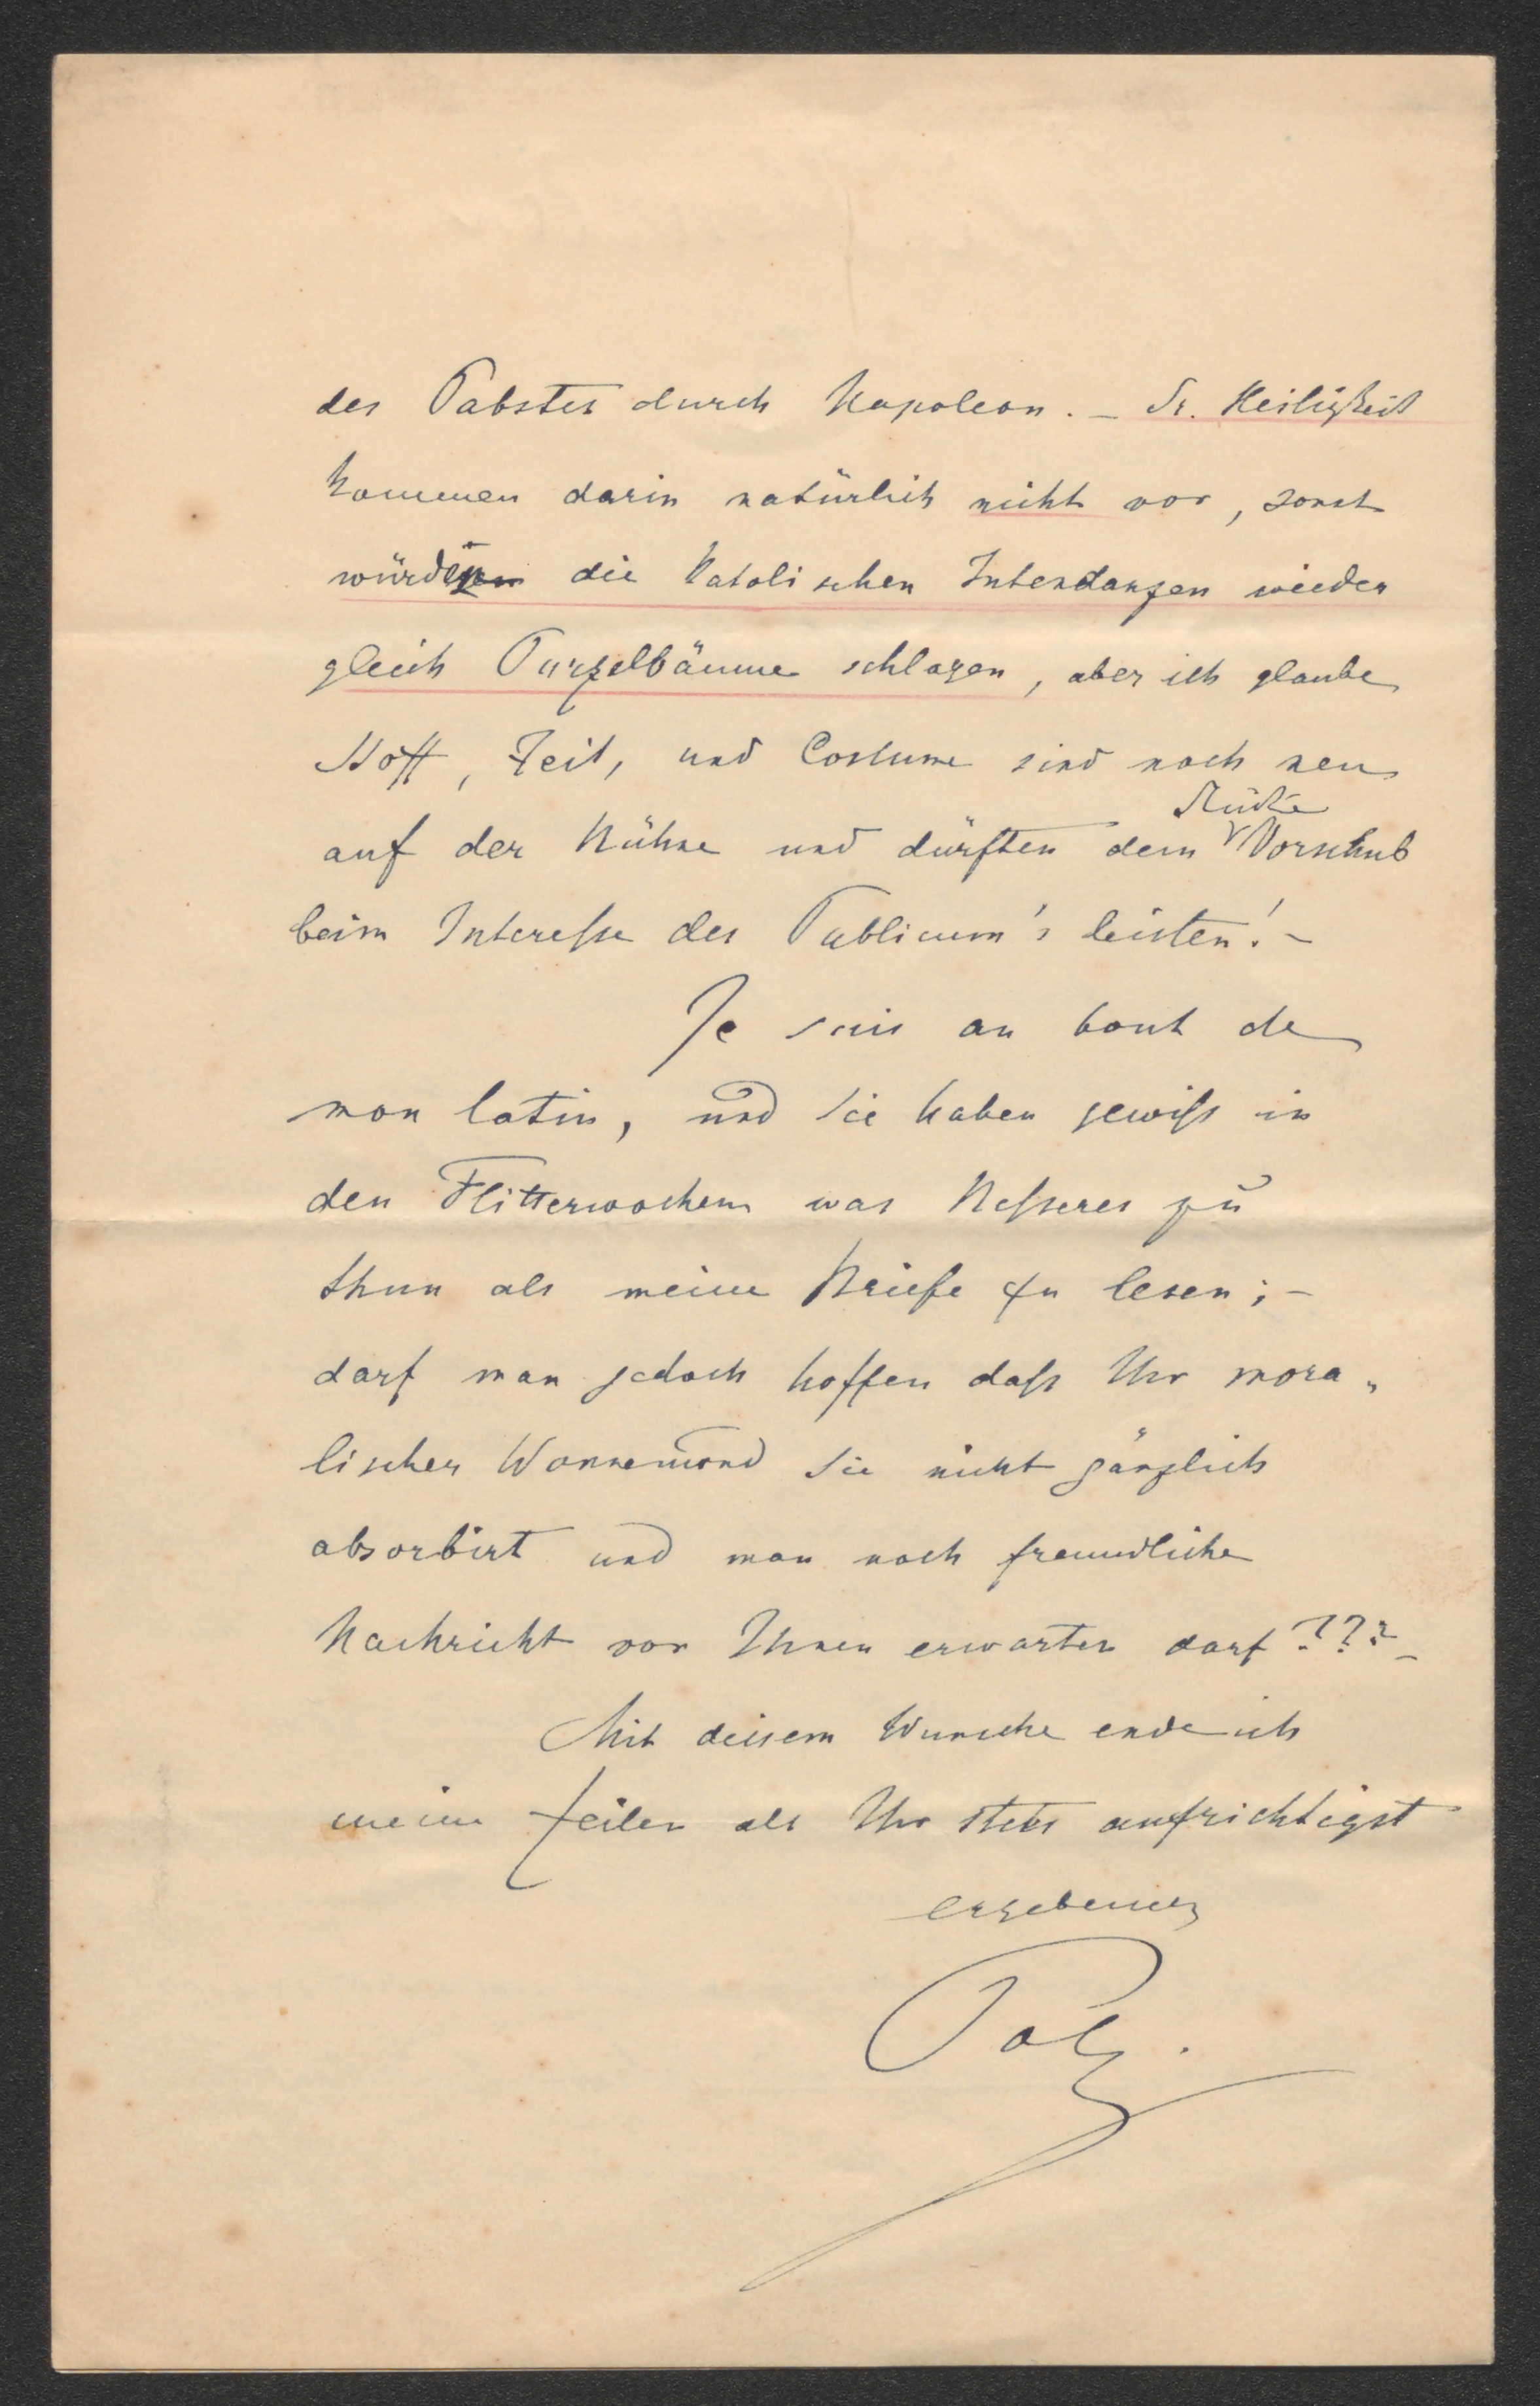 des Pabstes durch Napoleon. – Sr. Heiligkeit
kommen darin natürlich nicht vor, sonst
würden die katolischen Intendanzen wieder
gleich Purzelbäume schlagen, aber ich glaube
Stoff, Zeit, und Costume sind noch neu
Stücke
auf der Bühne und dürften dem Vorschub
beim Interesse des Publicum's leisten! –
Je suis au bout de
mon latin, und Sie haben gewiss in
den Flitterwochen was Besseres zu
thun als meine Briefe zu lesen; –
darf man jedoch hoffen dass Ihr mora„
lischer Wonnemond Sie nicht gänzlich
absorbirt und man noch freundliche
Nachricht von Ihnen erwarten darf??? –
Mit diesem Wunsche ende ich
meine Zeilen als Ihr stets aufrichtigst
ergebener